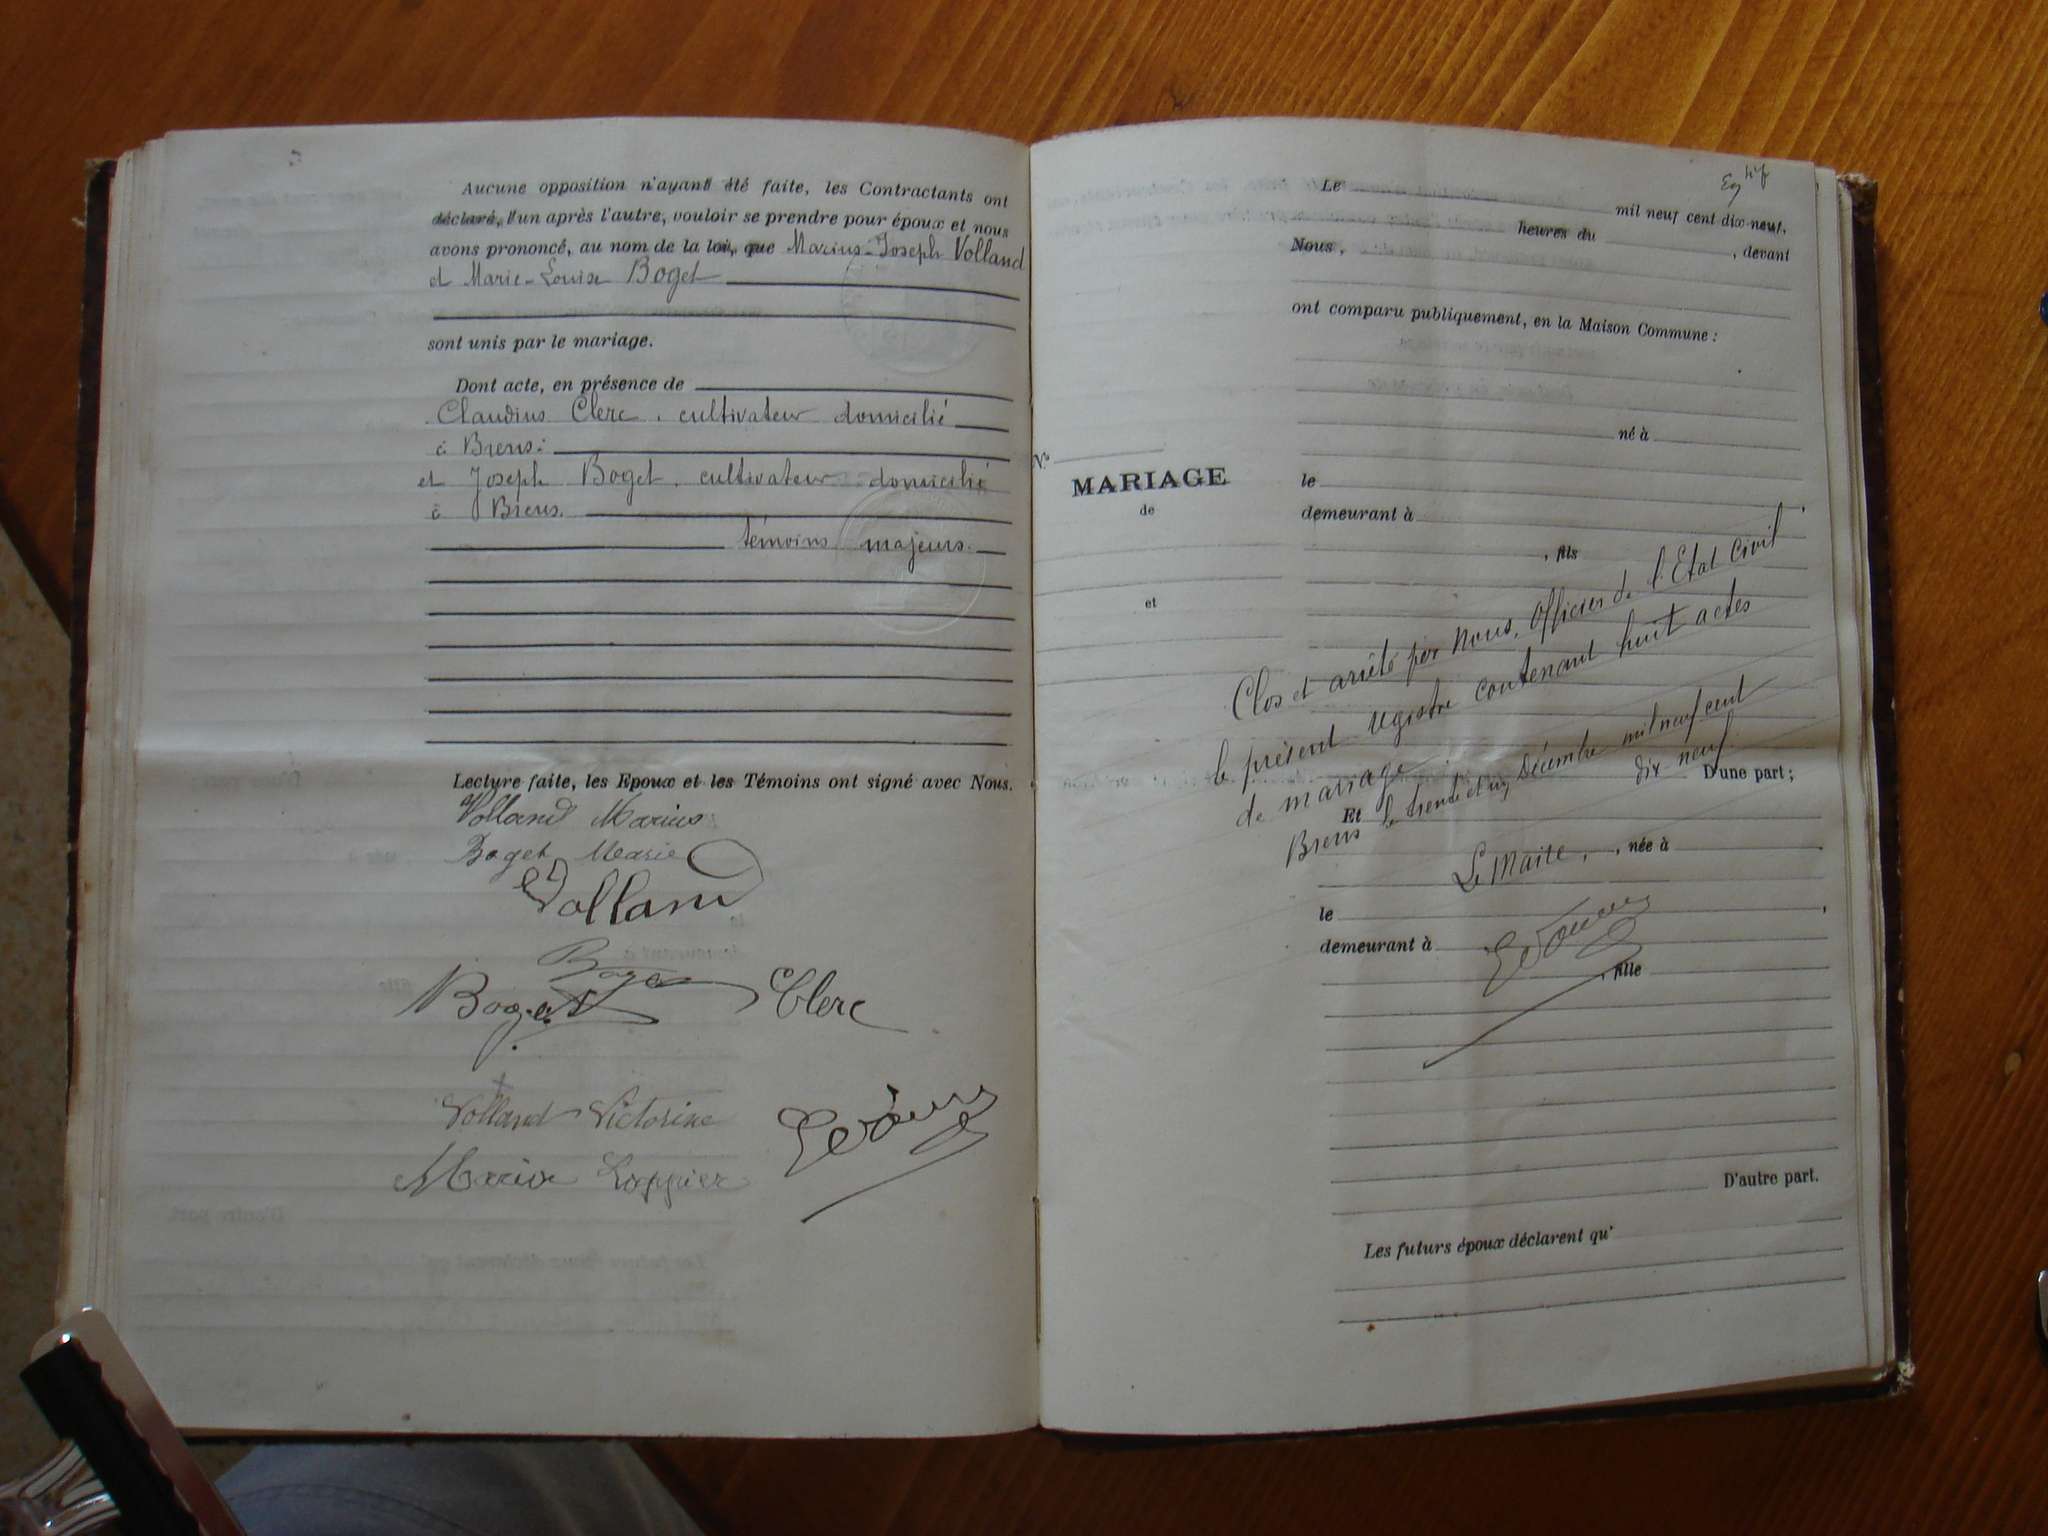 Aucune opposition n'ayant été faite, les Contractants ont
déclaré, l'un après l'autre, vouloir se prendre pour époux et nous
avons prononcé, au nom de la loi, que Marius-Joseph Volland
et Marie-Louise Boget
sont unis par le mariage.
Dont acte, en présence de
Claudius Clerc, cultivateur domicilié
à Brens;
et Joseph Boget, cultivateur domicilié
à Brens.
témoins majeurs.
Lecture faite, les Epoux et les Témoins ont signé avec Nous.
Volland Marius
Boget Marie
Volland
Boget
Boget Clerc
Volland Victorine
Maria
Le
mil neuf cent dix-neuf,
heures du , devant
Nous,
ont comparu publiquement, en la Maison Commune :
né à
N°
MARIAGE
de
et
le
demeurant à
, fils
Clos et arrêté par Nous, Officier de l'Etat Civil
le présent registre contenant huit actes
de mariage
Brens le trente et un Décembre mil neuf cent
dix neuf
D'une part ;
Et
Le Maire,
, née à
le ,
demeurant à
, fille
D'autre part.
Les futurs époux déclarent qu'